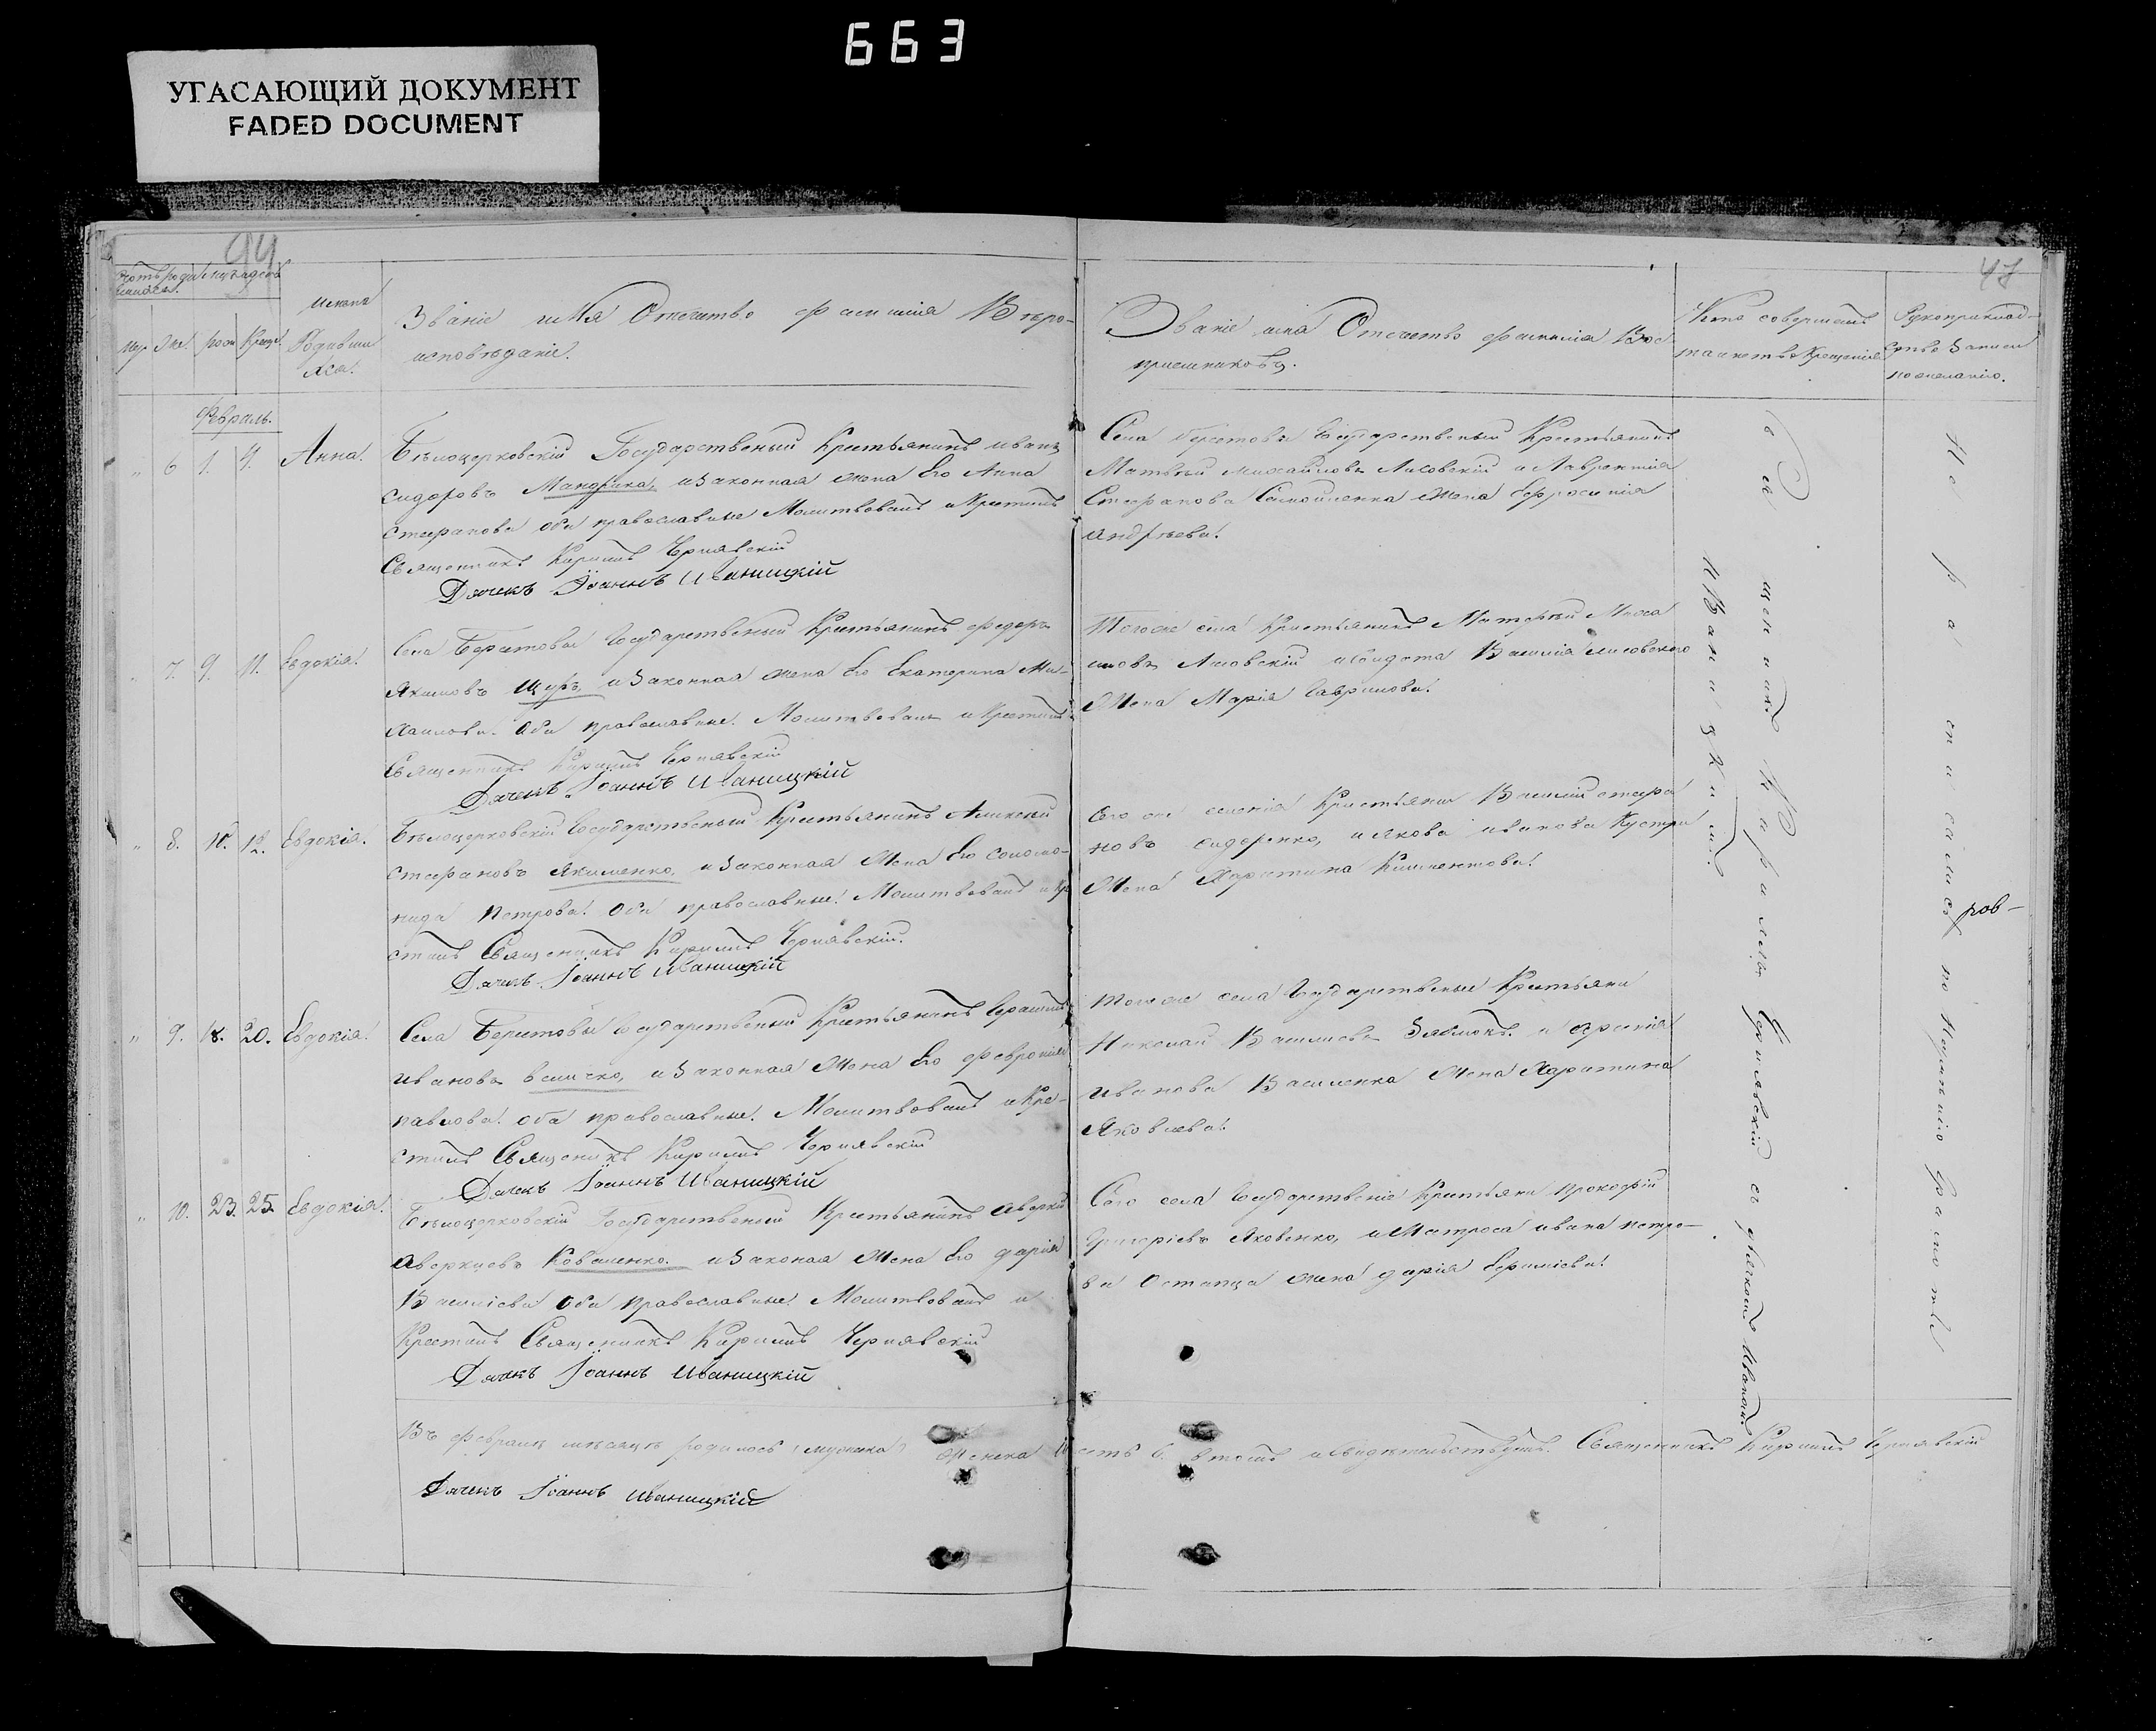 663
УГАСАЮЩИЙ ДОКУМЕНТ
FADED DOCUMENT
94
47
Имена
Родивши
хся.
Званіе имя Отечество фамилія Вѣро-
исповѣданіе.
Званіе имя Отечество фамилія Вос
приемниковъ.
Кто совершалъ
таинство Крещенія
Рукоприклад-
ство записи
по желанію.
муж. жен. рож. Крещ.
Февраль.
" 6 1. 4. Анна.
Бѣлоцерковскій Государственый Крестьянинъ иванъ
сидоровъ Мандрика, изаконная жена Его Анна
стефанова оба православные Молитвовалъ иКрестилъ
Священникъ Кирилъ Чернявскій
Дячекъ Іоаннъ Иваницкій
Села Берестовы Государственый Крестьянинъ
Матвѣй михайловъ Лисовскій и Лаврентія
Стефанова Самойленка жена Ефросинія
андрѣева.
" 7. 9. 11. Евдокія.
Села Берестовы Государственый Крестьянинъ федоръ
Якимовъ Щуръ, изаконная жена Его Екатерина Ми-
хаилова. Оба православные. Молитвовалъ иКрестилъ
Священникъ Кирилъ Чернявскій
Дячекъ Іоаннъ Иваницкій
Тогоже села Крестьянинъ Матфѣй Миха
иловъ Лисовскій Василія лисовского
Жена Марія Гаврилова.
" 8. 10. 12. Евдокія.
Бѣлоцерковскій Государственый Крестьянинъ Аликсѣй
стефановъ Якименко, изаконная Жена Его соломо-
нида Петрова. Оба православные. Молитвовалъ иКре
стилъ Священникъ Кирилъ Чернявскій.
Дячекъ Іоаннъ Иваницкій
Сего же селенія Крестьяни Василій стефа
новъ сидоренко, иякова иванова Кустри
Жена Харитина Климентова.
" 9. 18. 20. Евдокія.
Села Берестовы Государственый Крестьянинъ Герасимъ
Ивановъ Величко, изаконная Жена Его февронія
павлова. оба православные. Молитвовалъ иКре-
стилъ Священикъ Кирилъ Чернявскій
Дячекъ Іоаннъ Иваницкій
Тогоже села Государственые Крестьяни
Николай Василіевъ Зяблокъ. и Арсенія
иванова Василенка Жена Харитина
Яковлева.
" 10. 23. 25. Евдокія.
Бѣлоцерковскій Государственый Крестьянинъ Аверкій
Аверкиевъ Коваленко. изаконая Жена Его дарія
Василіева Оба православные. Молитвовалъ и
Крестилъ Священникъ Кирилъ Чернявскій
Дячекъ Іоаннъ Иваницкій
Сего села Государственіе Крестьяни Прокофій
Григоріевъ Яковенко, иМатроса ивана петро-
ва Остапца жена дарія Ефиміева.
Священникъ Кирилъ Чернявскій съ дячкомъ Иваном
Иваницкимъ
Не росписались по Неумѣнію Грамотѣ
Въ февралѣ мѣсяцѣ родилось мужеска Женска шесть 6. втомъ исвидѣтельствуемъ. Священникъ Кирилъ Чернявскій
Дячекъ Іоаннъ Иваницкій